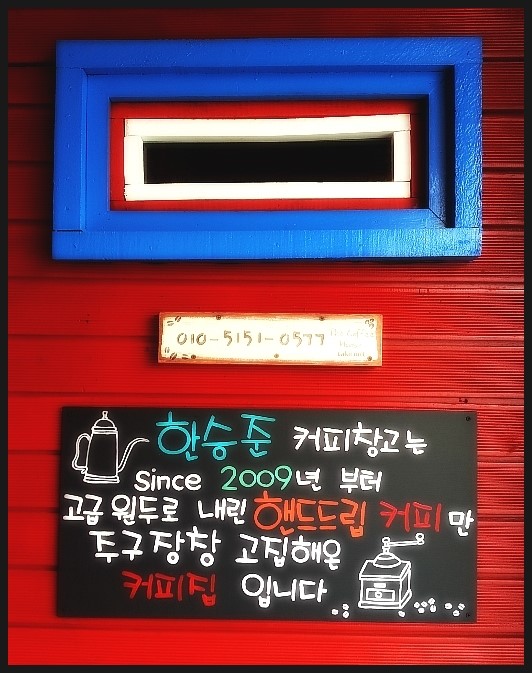 010-5151-0577
한승준 커피창고는
since 2009년 부터
고급 원두로 내린 핸드드립 커피만
주구장창 고집해온
커피집 입니다